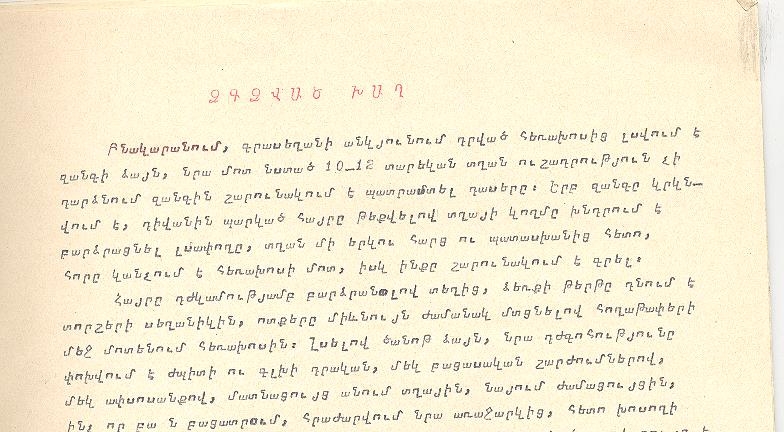 ՁԳՁՎԱԾ ԽԱՂ
Բնակարանում, գրասեղանի անկյունում դրված հեռախոսից լսվում է
զանգի ձայն, նրա մոտ նստած 10_12 տարեկան տղան ուշադրություն չի
դարձնում զանգին շարունակում է պատրաստել դասերը: Երբ զանգը կրկն-
վում է, դիվանին պարկած հայրը թեքվելով տղայի կողմը խնդրում է
բարձրացնել լսափողը, տղան մի երկու հարց ու պատասխանից հետո,
հորը կանչում է հեռախոսի մոտ, իսկ ինքը շարունակում է գրել:
Հայրը դժկամությամբ բարձրանալով տեղից, ձեռքի թերթը դնում է
տորշերի սեղանիկին, ոտքերը միևնույն ժամանակ մտցնելով հողաթափերի
մեջ մոտենում հեռախոսին: Լսելով ծանոթ ձայն, նրա դժգոհությունը
փոխվում է ժպիտի ու գլխի դրական, մեկ բացասական շարժումներով,
մեկ ափսոսանքով, մատնացույց անում տղային, նայում ժամացույցին,
ին, որ բա ն բացատրում, հրաժարվում նրա առաջարկից, հետո խոսողի